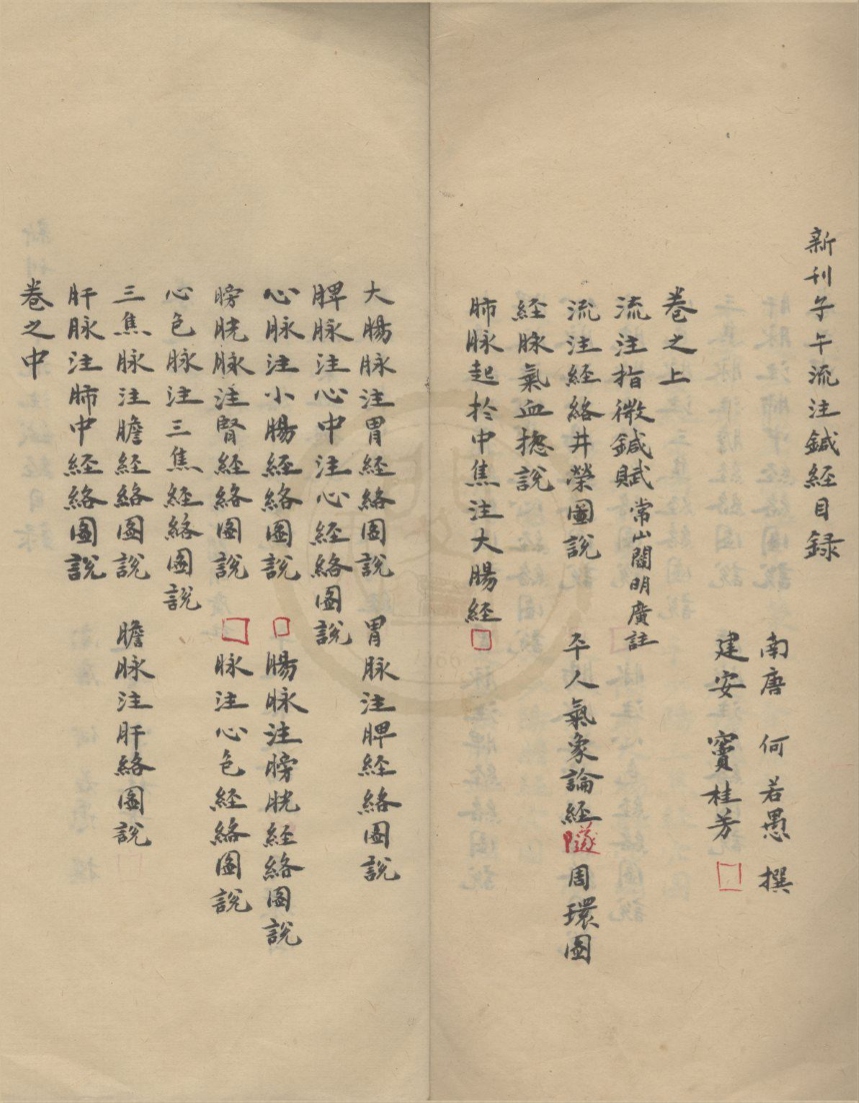 新刊子午流注鍼經目録
南唐 何若愚 撰
建安 竇桂芳 □
卷之上
流注指微鍼賦 常山閻明廣註
流注經絡井榮圖說 平人氣象論經隧周環圖
經脉氣血揔說
肺脉起於中焦注大腸經□
大腸脉注胃經絡圖說 胃脉注脾經絡圖說
脾脉注心中注心經絡圖說
心脉注小腸經絡圖說 □腸脉注膀胱經絡圖說
膀胱脉注腎經絡圖說 □脉注心色經絡圖說
心色脉注三焦經絡圖說
三焦脉注膽經絡圖說 膽脉注肝絡圖說
肝脉注肺中經絡圖說
卷之中